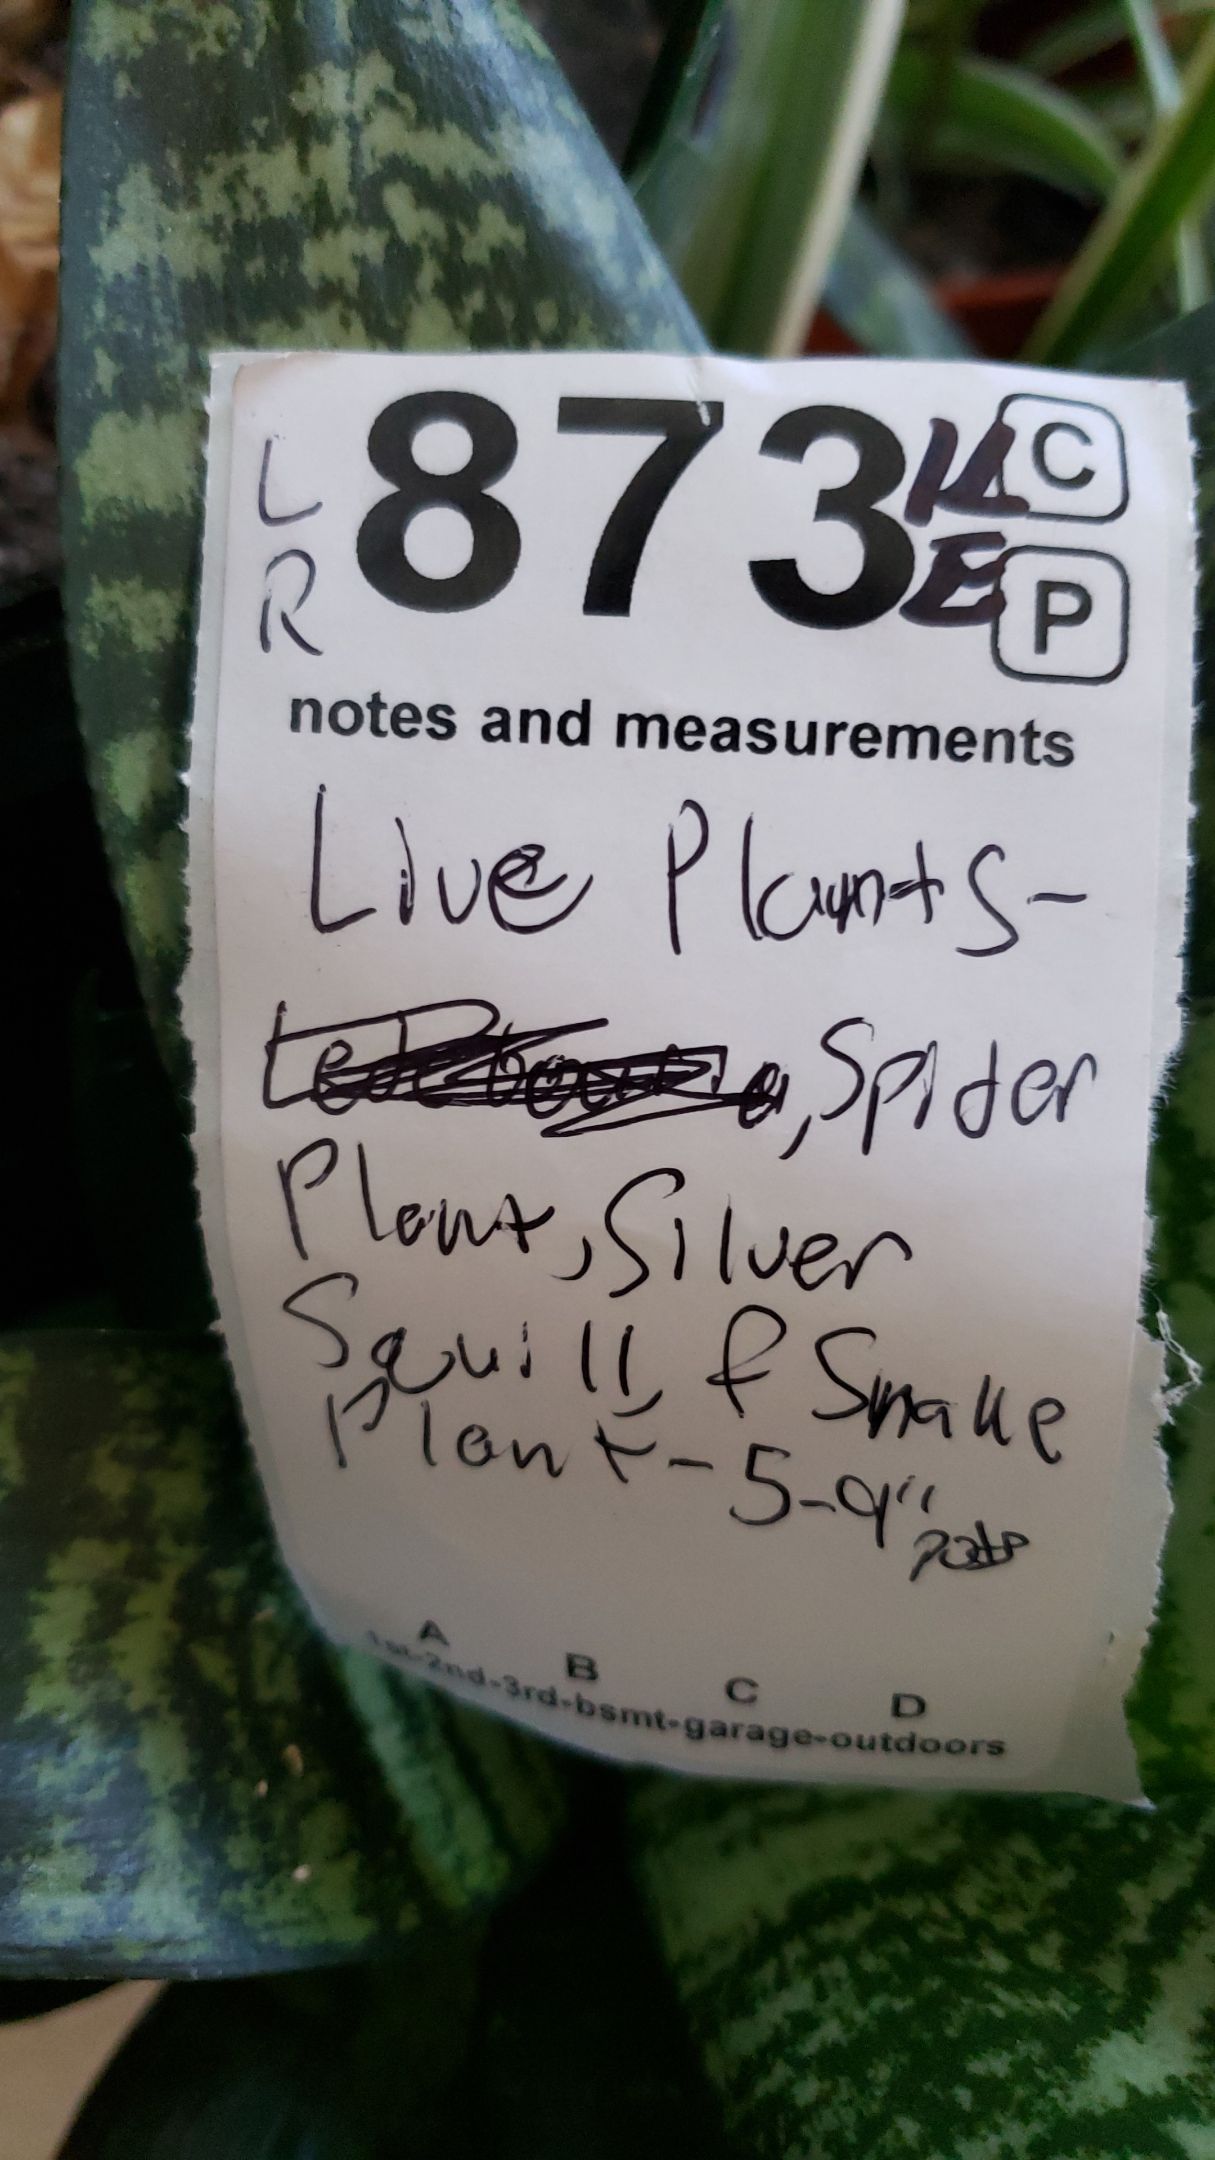 L 873 C
R P
notes and measurements
Live Plants-
, Spider
Plant, Silver
Squill, & Snake
Plant - 5-9"
pots
A B C D
1st-2nd-3rd-bsmt-garage-outdoors